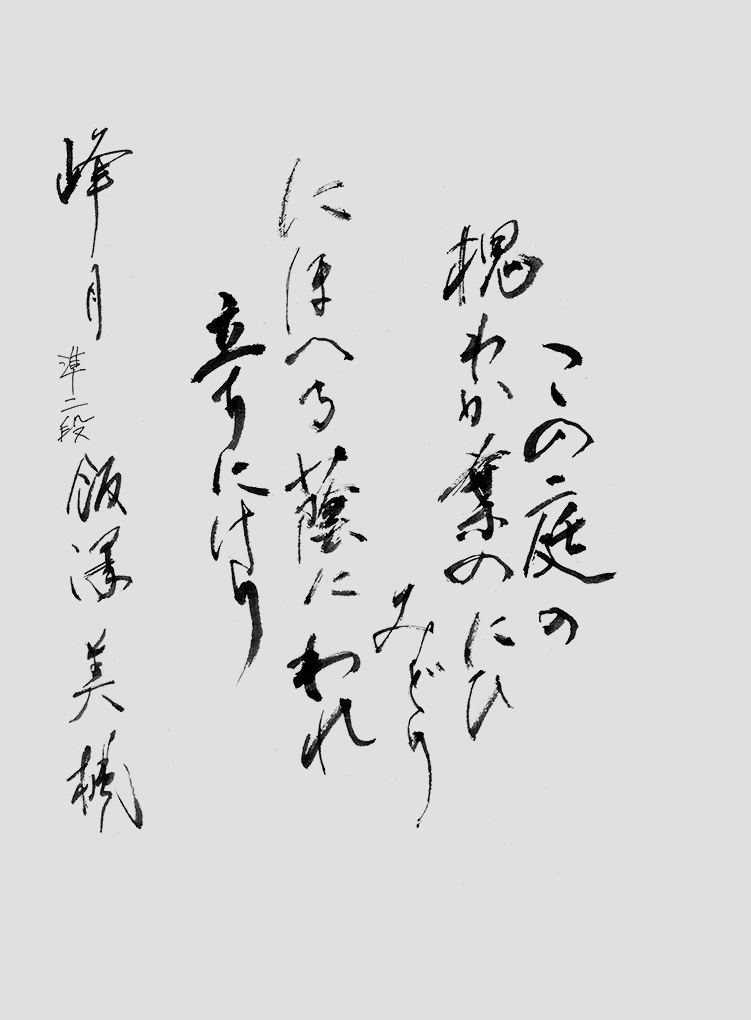 この庭の
槐わか葉のにひ
みどり
にほへる蔭に われ
立ちにけり
峰月 準二段 飯澤美楓